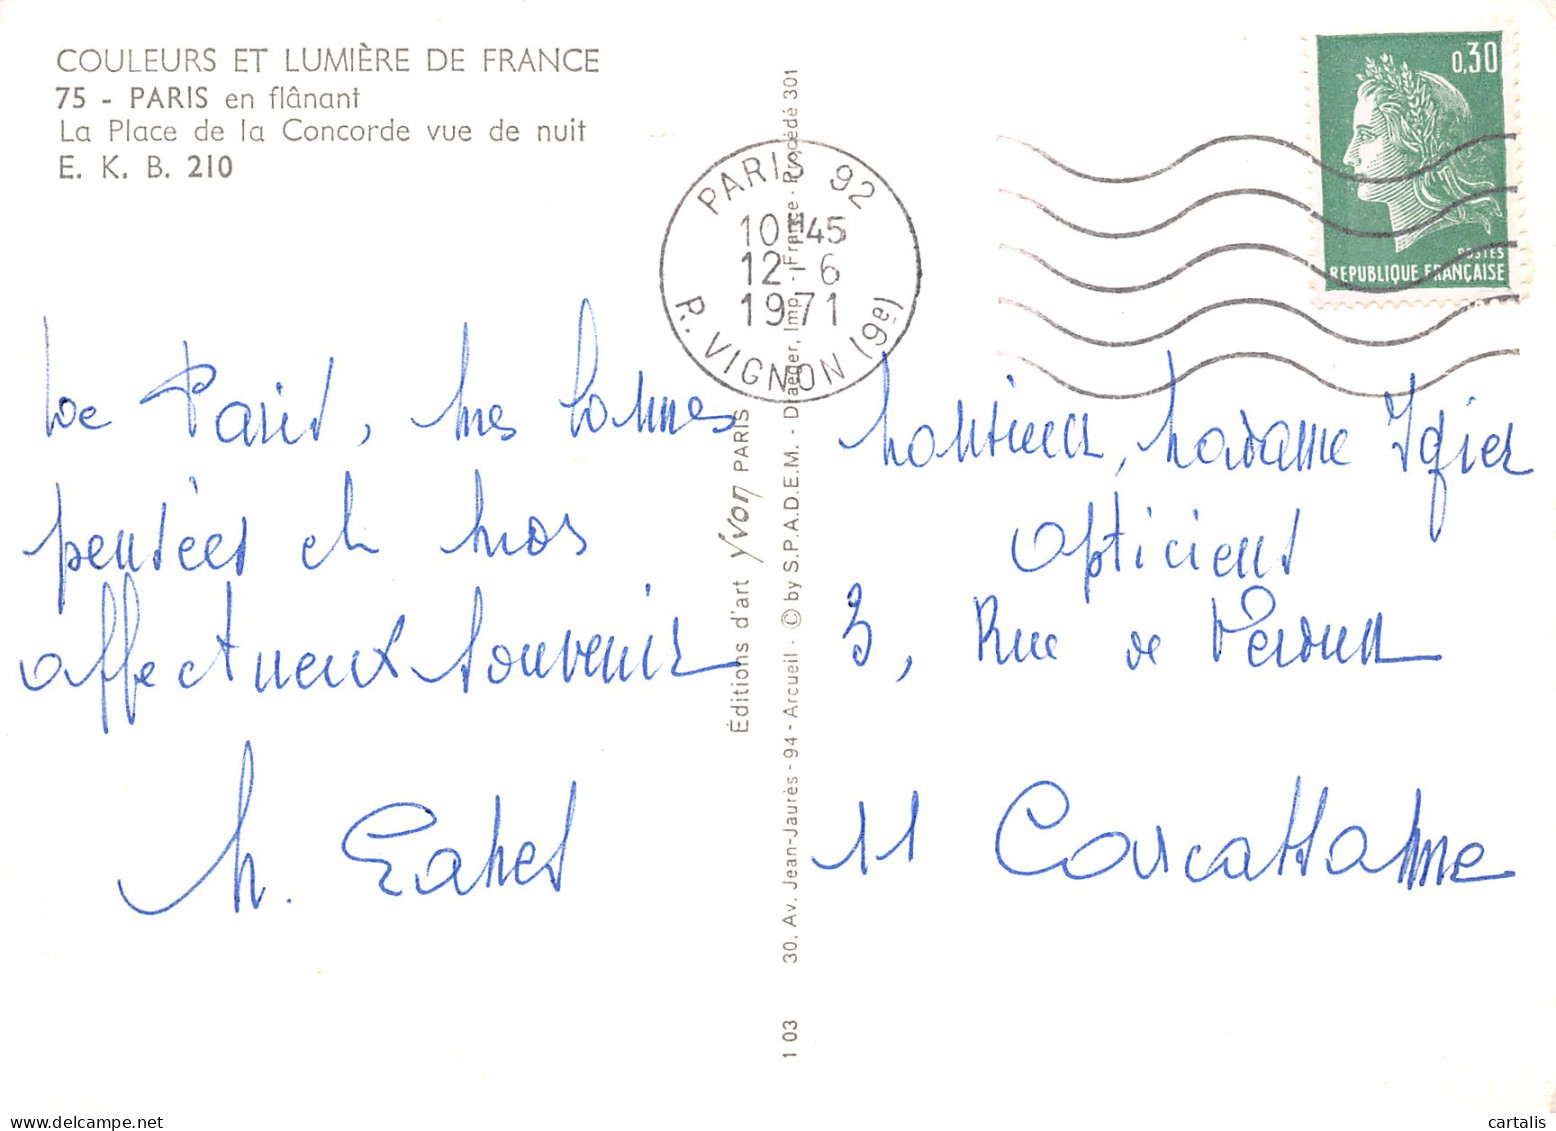 COULEURS ET LUMIÈRE DE FRANCE
75 - PARIS en flânant
La Place de la Concorde vue de nuit
E. K. B. 210
PARIS 92
10H45
12-6
1971
R. VIGNON (9e)
0,30
POSTES
REPUBLIQUE FRANÇAISE
De Paris, mes bonnes
pensées et mon
affectueux souvenir
M.
Éditions d'art Yvon PARIS
30, Av. Jean-Jaurès - 94 - Arcueil - © by S.P.A.D.E.M. - Draeger, Imp. - France - Procédé 301
1 03
Monsieur, Madame Igier
Opticiens
3, Rue de Verdun
11 Carcassonne
delcampe.net
cartalis